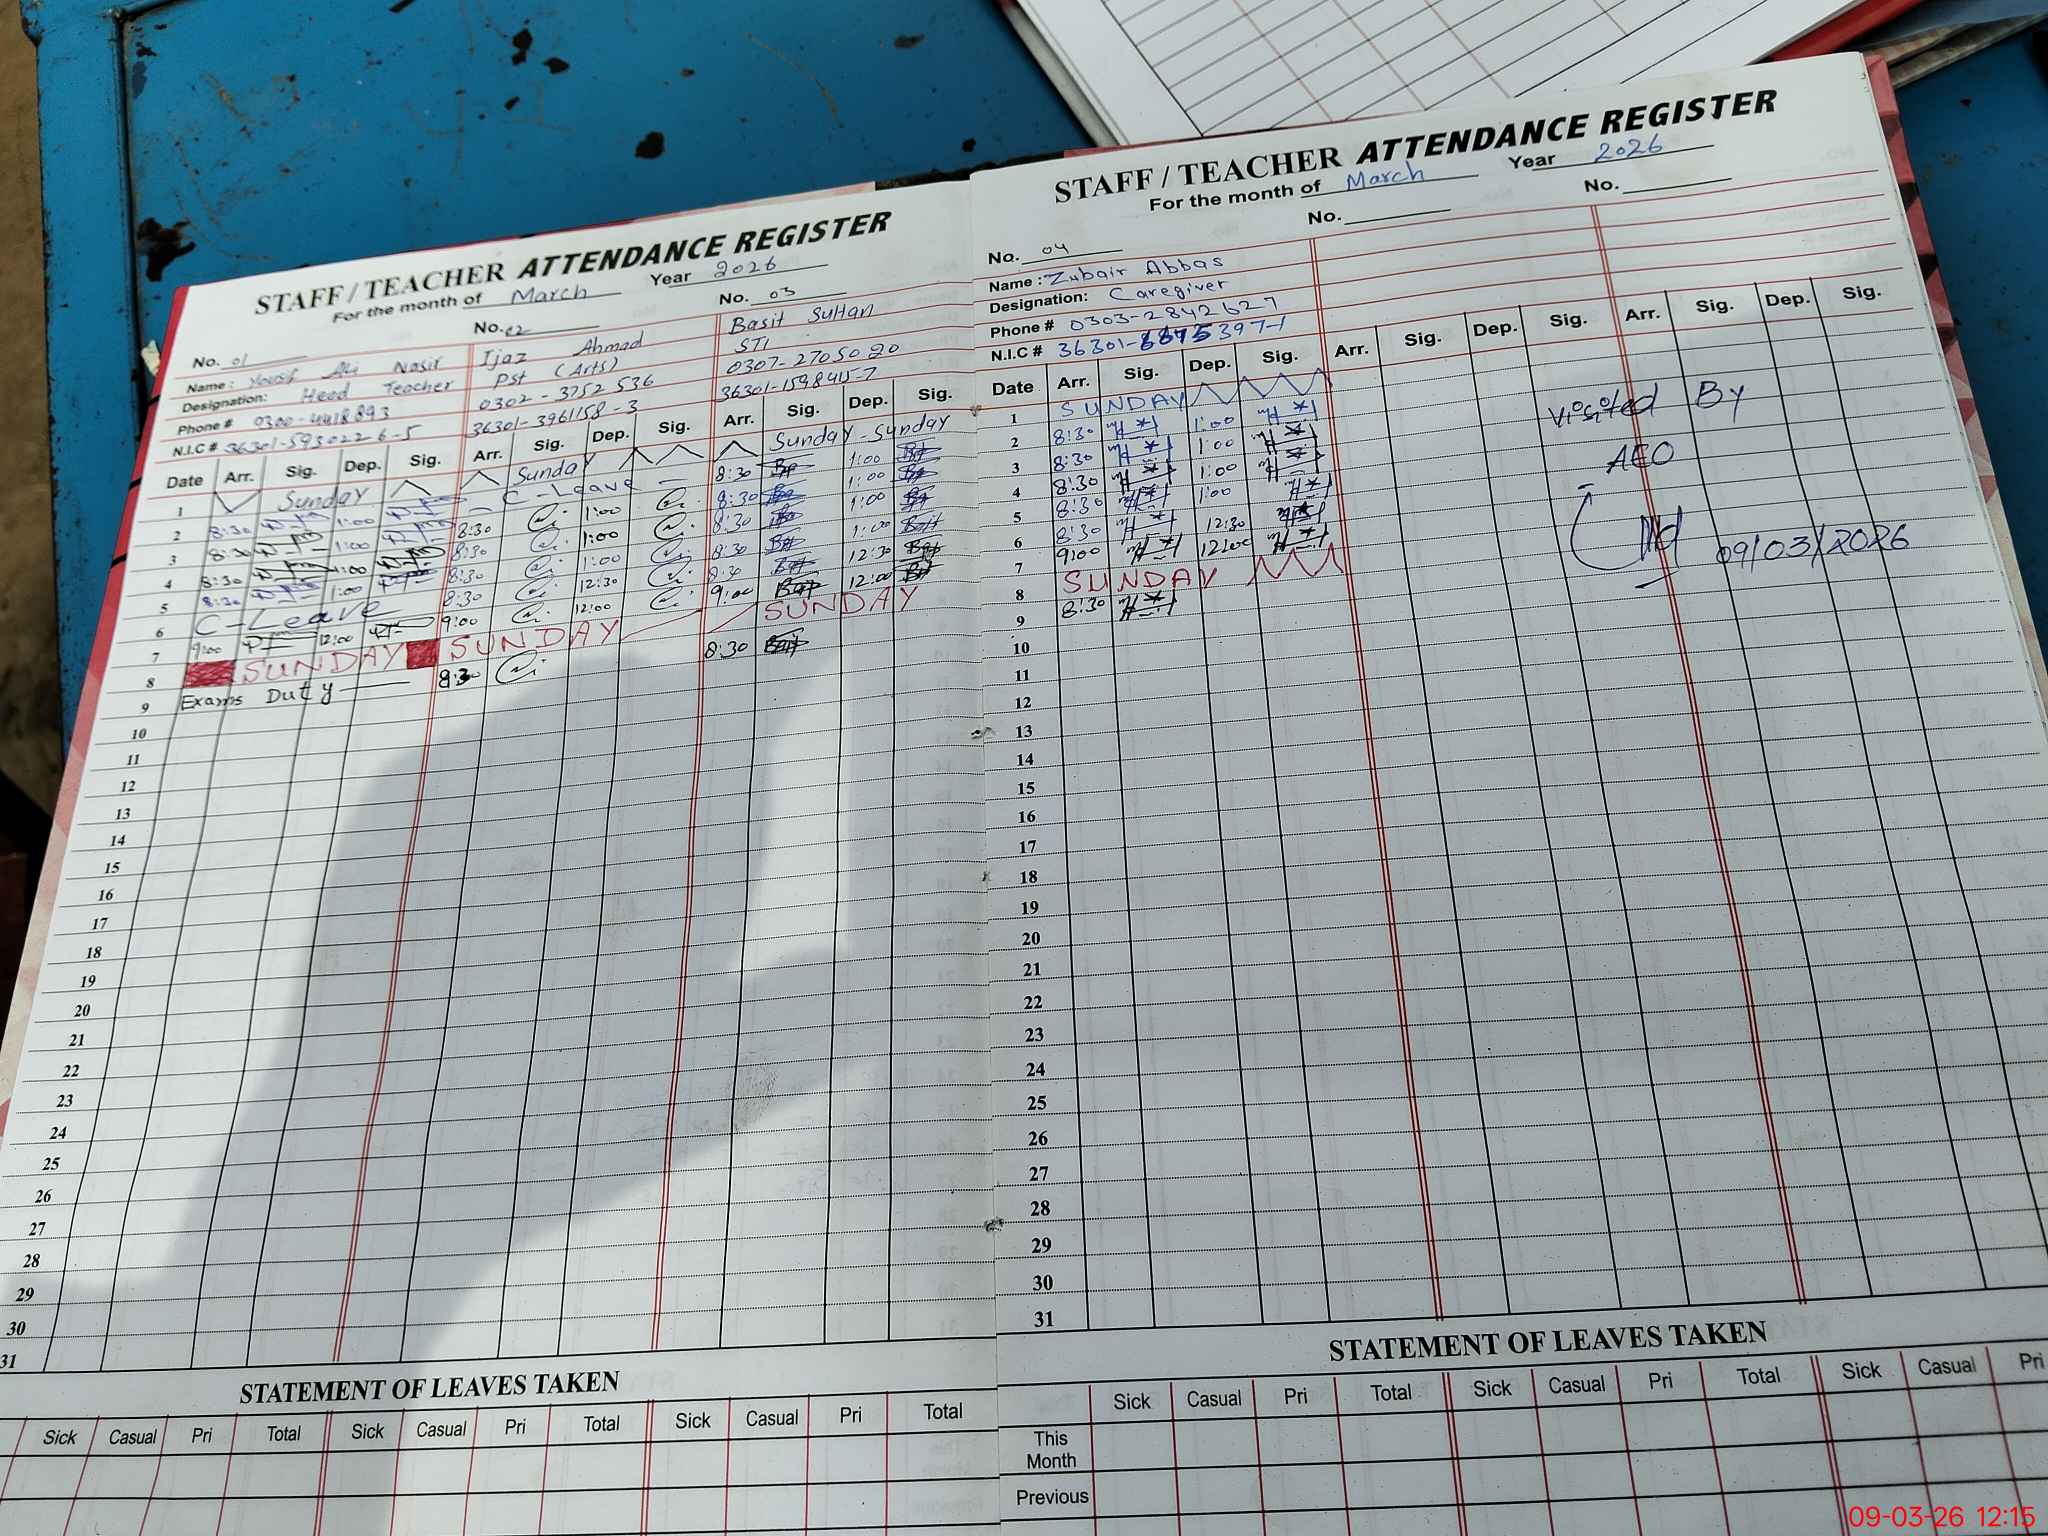 STAFF / TEACHER ATTENDANCE REGISTER
For the month of March Year 2026
No. 01 No. 02 No. 03
Name: Yousif Ali Nasir Ijaz Ahmad Basit Sultan
Designation: Head Teacher Pst (Arts) STI
Phone # 0300-4418893 0302-3752536 0307-2705020
N.I.C # 36301-5930226-5 36301-3961158-3 36301-1598415-7
Date Arr. Sig. Dep. Sig. Arr. Sig. Dep. Sig. Arr. Sig. Dep. Sig.
1 Sunday Sunday Sunday-Sunday
2 8:30 1:00 C-Leave 8:30 1:00
3 8:30 1:00 8:30 1:00 8:30 1:00
4 8:30 1:00 8:30 1:00 8:30 1:00
5 8:30 1:00 8:30 1:00 8:30 1:00
6 C-Leave 8:30 12:30 8:30 12:30
7 9:00 12:00 9:00 12:00 9:00 12:00
8 SUNDAY SUNDAY SUNDAY
9 Exams Duty 8:30 8:30
10
11
12
13
14
15
16
17
18
19
20
21
22
23
24
25
26
27
28
29
30
31
STATEMENT OF LEAVES TAKEN
Sick Casual Pri Total Sick Casual Pri Total Sick Casual Pri Total
STAFF / TEACHER ATTENDANCE REGISTER
For the month of March Year 2026
No. 04 No. No.
Name: Zubair Abbas
Designation: Caregiver
Phone # 0303-2842627
N.I.C # 36301-8875397-1
Date Arr. Sig. Dep. Sig. Arr. Sig. Dep. Sig. Arr. Sig. Dep. Sig.
1 SUNDAY
2 8:30 1:00
3 8:30 1:00
4 8:30 1:00
5 8:30 1:00
6 8:30 12:30
7 9:00 12:00
8 SUNDAY
9 8:30
10
11
12
13
14
15
16
17
18
19
20
21
22
23
24
25
26
27
28
29
30
31
Visited By
AEO
09/03/2026
STATEMENT OF LEAVES TAKEN
Sick Casual Pri Total Sick Casual Pri Total Sick Casual Pri
This Month
Previous
09-03-26 12:15